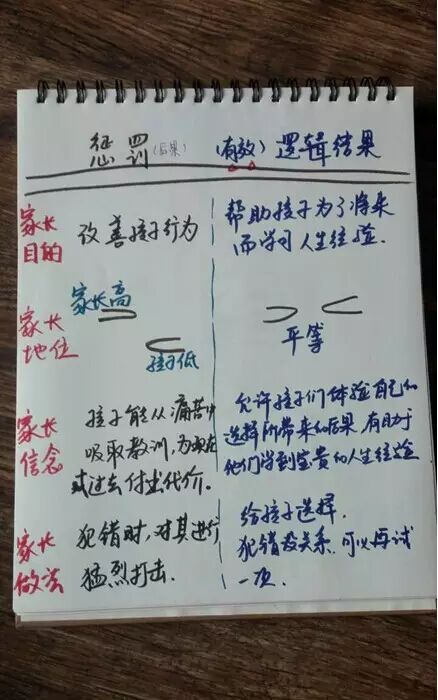 惩罚(后果) (有效)逻辑结果
家长目的
改善孩子行为
帮助孩子为了将来
而学习人生经验.
家长地位
家长高
孩子低
平等
家长信念
孩子能从痛苦中
吸取教训,为现在
或过去付出代价.
允许孩子们体验自己的
选择所带来的后果,有助于
他们学到宝贵的人生经验
家长做法
犯错时,对其进行
猛烈打击.
给孩子选择.
犯错没关系.可以再试
一次.